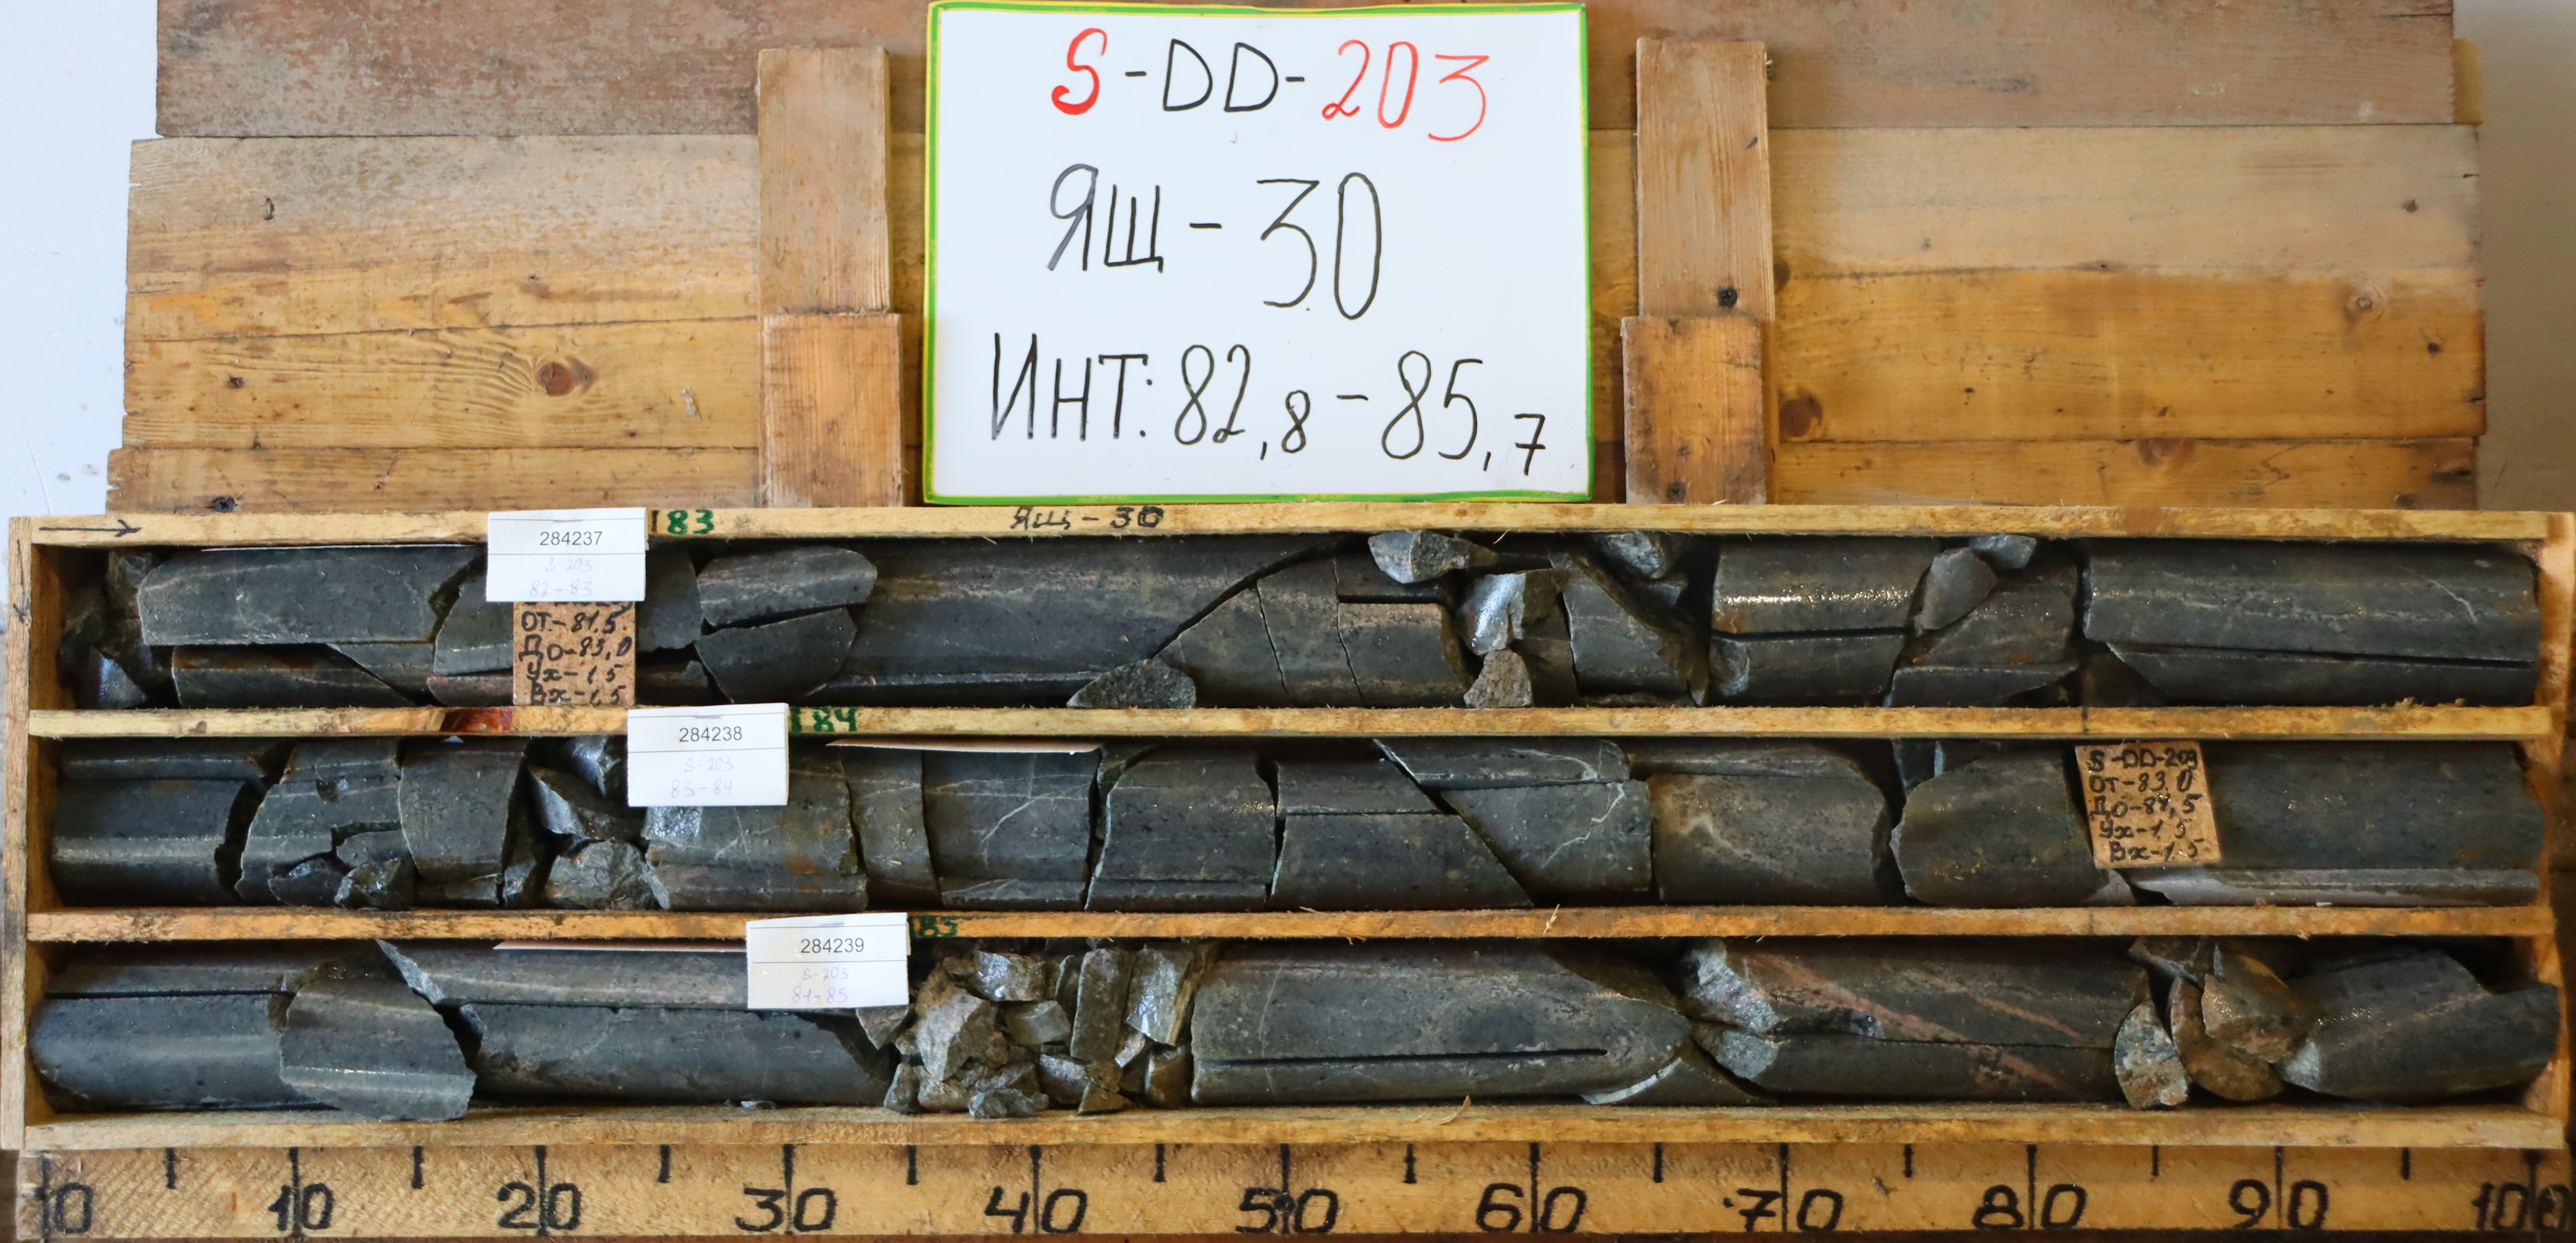 S-DD-203
ЯЩ-30
ИНТ: 82,8-85,7
83
Ящ-30
284237
S-203
82-83
ОТ-81.5
ДО-83,0
Ух-1.5
Вх-1,5
84
284238
S-203
83-84
S-DD-203
ОТ-83.0
ДО-84,5
Ух-1.5
Вх-1.5
85
284239
S-203
84-85
0 10 20 30 40 50 60 70 80 90 100